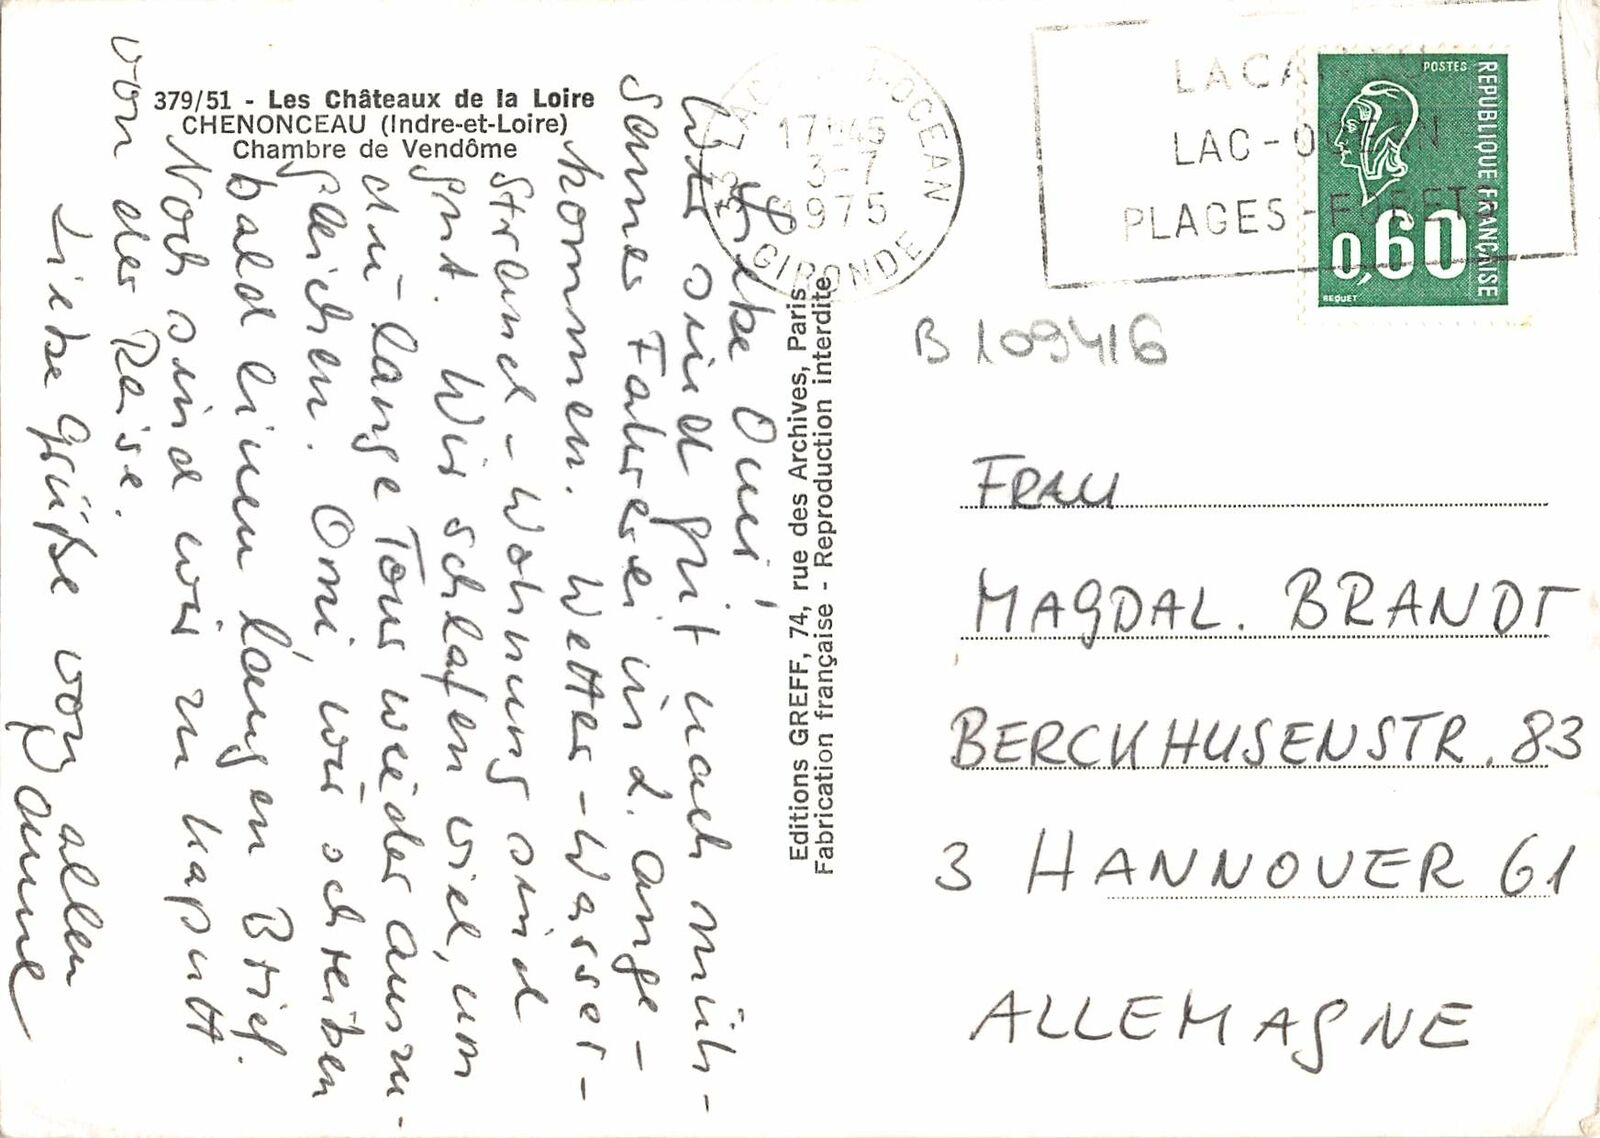 379/51 - Les Châteaux de la Loire
CHENONCEAU (Indre-et-Loire)
Chambre de Vendôme
Liebe Omi,
Wir sind gut nach müh-
samer Fahrerei in L. ange-
kommen. Wetter - Wasser -
Strand - Wohnung sind
gut. Wir schlafen viel, um
die lange Tour wieder auszu-
gleichen. Omi, wir schreiben
bald einen langen Brief.
Noch sind wir zu kaputt
von der Reise.
Liebe Grüße von allen
Editions GREFF, 74, rue des Archives, Paris
Fabrication française - Reproduction interdite
33 OCEAN
17H45
3-7
1975
GIRONDE
LAC-OCEAN
PLAGES-FORETS
POSTES
REPUBLIQUE FRANÇAISE
0,60
BEQUET
B 109416
FRAU
MAGDAL. BRANDT
BERCKHUSENSTR. 83
3 HANNOVER 61
ALLEMAGNE